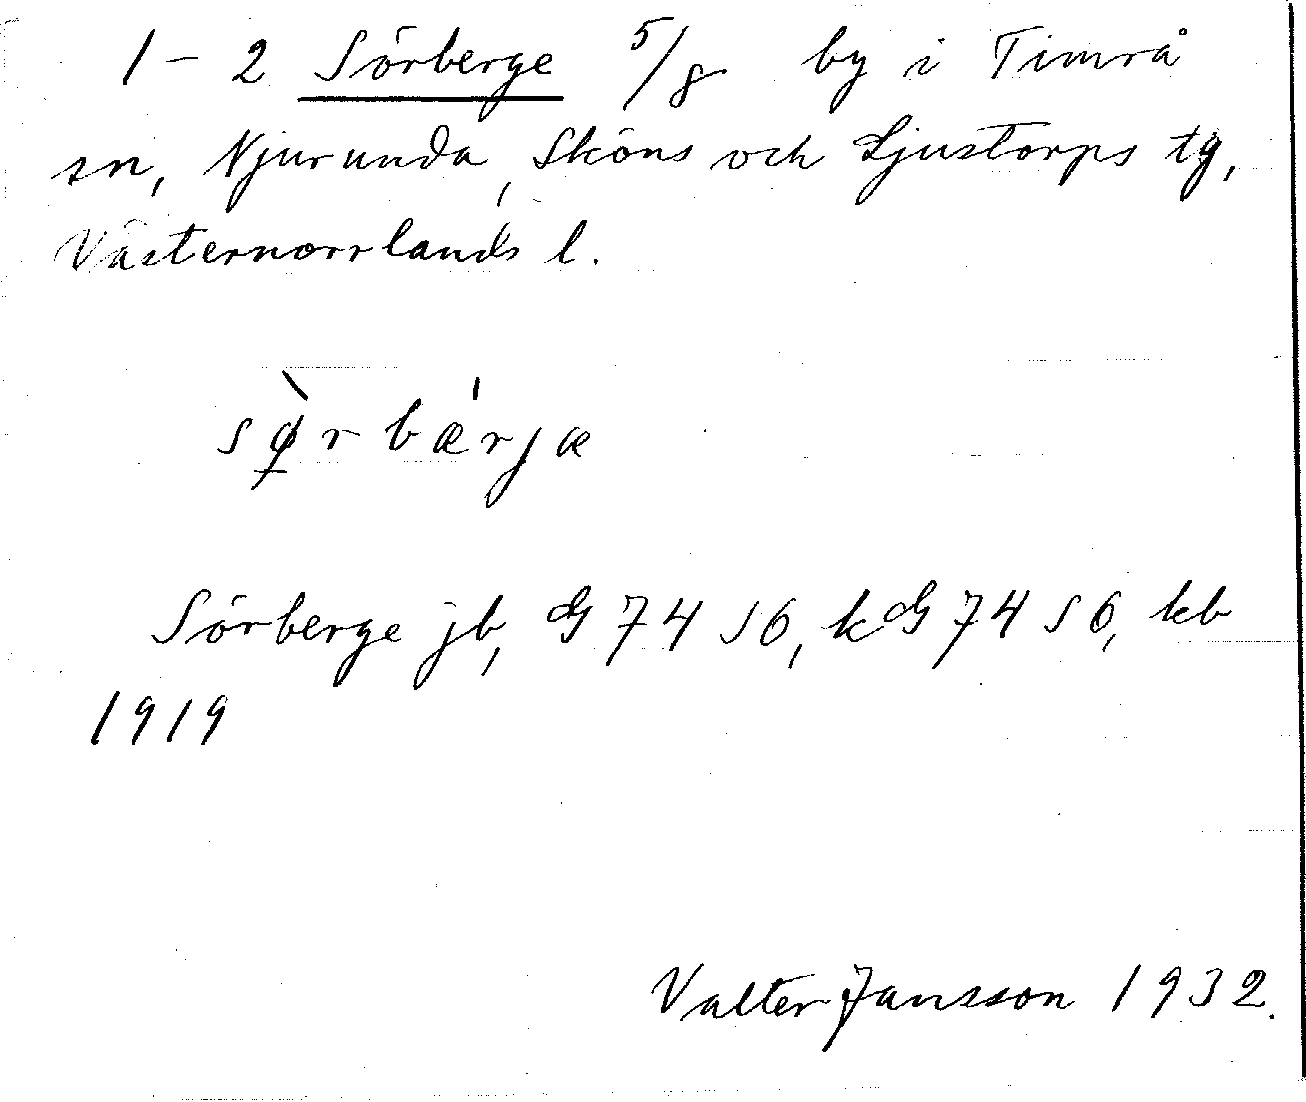 1-2 Sörberge 5/8 by i Timrå
sn, Njurunda, Sköns och Ljustorps tg,
Västernorrlands l.
sø̀rbæ'rjæ
Sörberge jb, G 74 S6, kG 74 S6, kb
1919
Valter Jansson 1932.